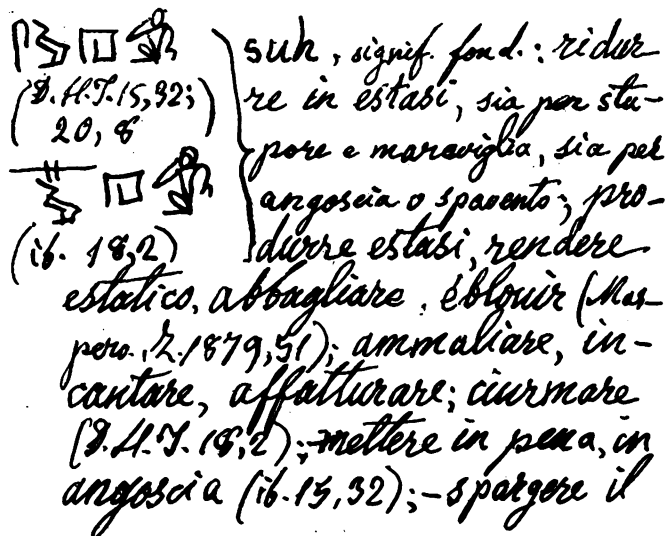 suh, signif. fond.: ridur
(D.H.T. 15,32; re in estasi, sia per stu-
20,8) pore e maraviglia, sia per
angoscia o spavento; pro-
(ib. 18,2) durre estasi, rendere
estatico, abbagliare, éblouir (Mas-
pero, Z. 1879,51); ammaliare, in-
cantare, affatturare; ciurmare
(D.H.T. 18,2); -mettere in pena, in
angoscia (ib. 15,32); -spargere il